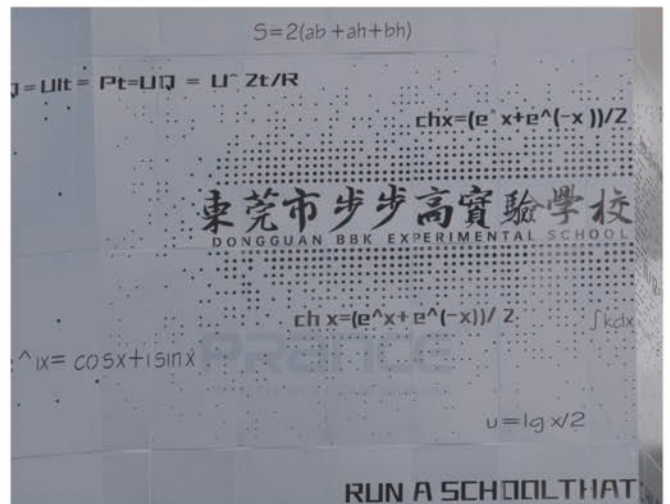 S=2(ab+ah+bh)
Q=UIt= Pt=UQ = U^2t/R
chx=(e^x+e^(-x))/2
東莞市步步高實驗學校
DONGGUAN BBK EXPERIMENTAL SCHOOL
ch x=(e^x+e^(-x))/ 2
∫kdx
^ix= cosx+isinx
PRANCE
u=lg x/2
RUN A SCHOOL THAT